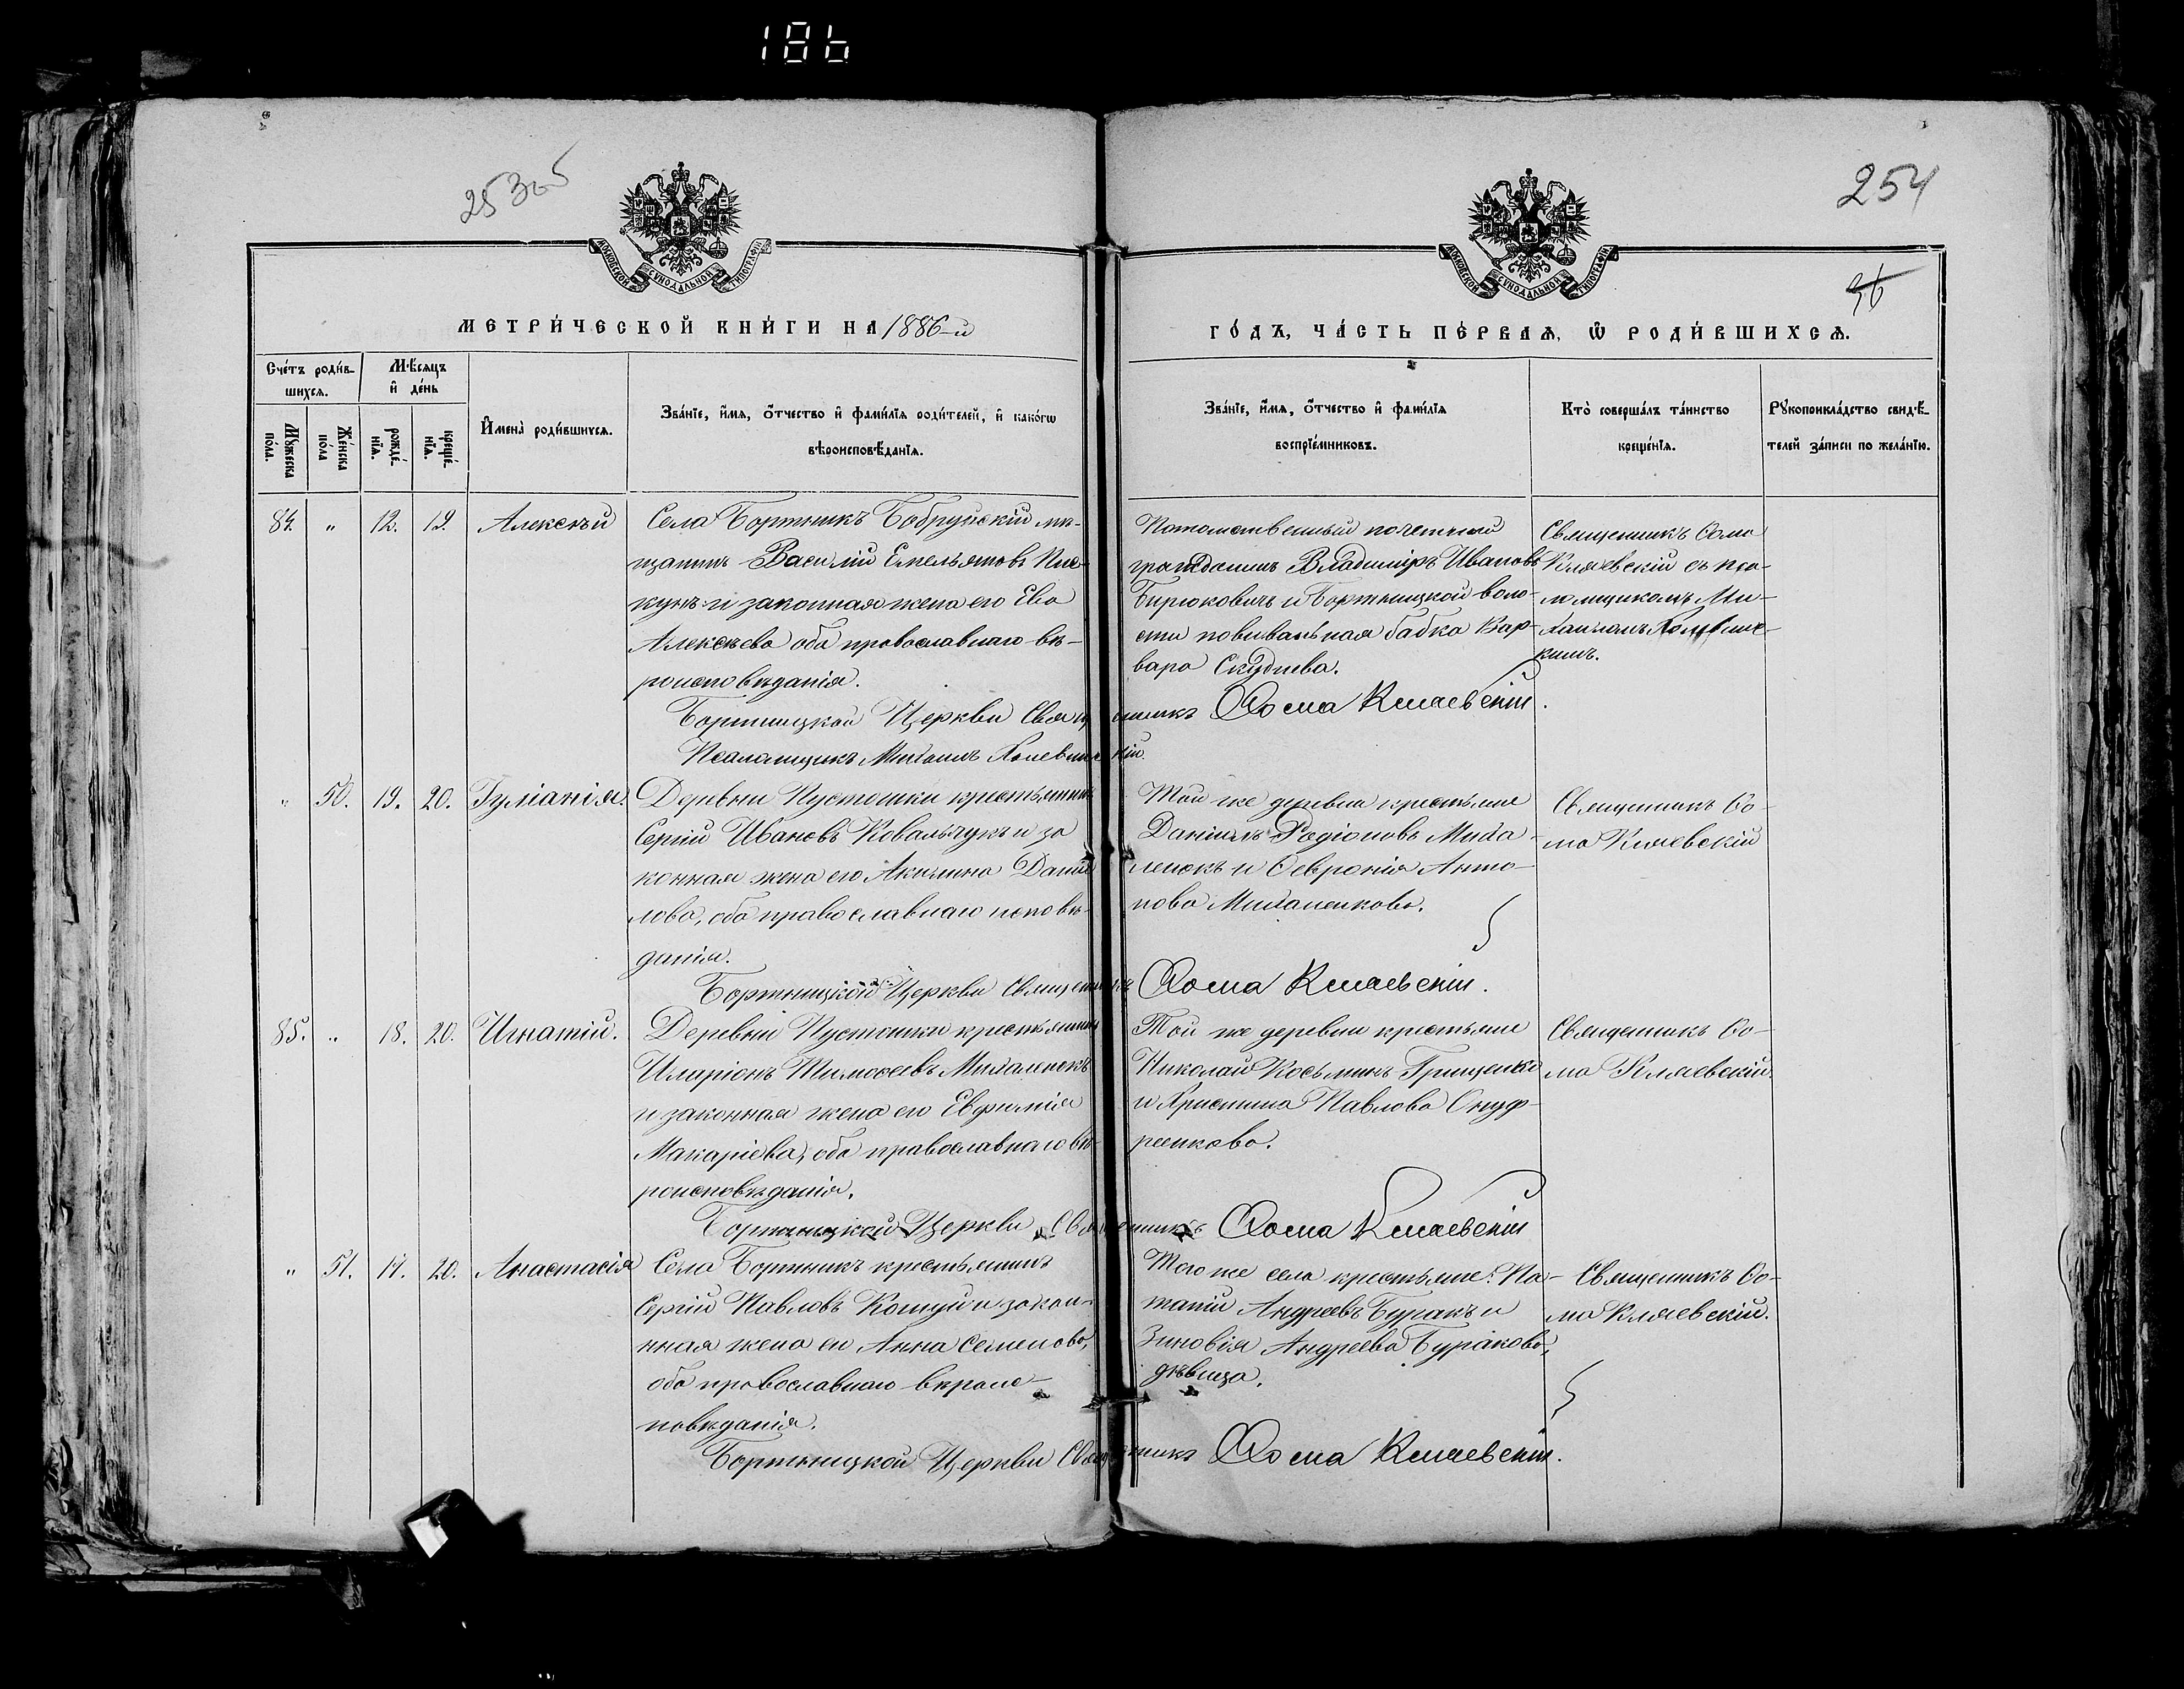 186
254
36
МОСКОВСКОЙ СѴНОДАЛЬНОЙ ТИПОГРАФІИ
МОСКОВСКОЙ СѴНОДАЛЬНОЙ ТИПОГРАФІИ
МЕТРИ́ЧЕСКОЙ КНИ́ГИ НА 1886-й
ГО́ДЪ, ЧА́СТЬ ПЕ́РВАѦ, Ѡ҆ РОДИ́ВШИХСѦ.
Сче́тъ роди́в-
шихсѧ.
Мѣ́сѧцъ
и҆ де́нь
Мꙋ́жеска по́ла.
Же́нска по́ла
рожде́нїѧ.
креще́нїѧ.
И҆мена̀ роди́вшихсѧ.
Зва́нїе, и҆́мѧ, ѻ҆́тчество и҆ фамилїѧ роди́телей, и҆ како́гѡ
вѣроисповѣ́данїѧ.
Зва́нїе, и҆́мѧ, ѻ҆́тчество и҆ фами́лїѧ
воспрїе́мниковъ.
Кто̀ соверша́лъ та́инство
креще́нїѧ.
Рꙋкоприкла́дство свидѣ́-
телей за́писи по жела́нїю.
84. " 12. 19. Алексѣй
Села Бортникъ Бобруйскій мѣ-
щанинъ Василій Емельяновъ Пис-
кунъ и законная жена его Ева
Алексѣева оба православнаго вѣ-
роисповѣданія.
Потомственный почетный
гражданинъ Владиміръ Ивановъ
Бирюковичъ и Бортницкой воло-
сти повивальная бабка Вар-
вара Скуднева.
Священникъ Ѳома
Кляевскій съ пса-
ломщикомъ Ми-
хаиломъ
Бортницкой Церкви Священникъ Ѳома Кляевскій.
Псаломщикъ Михаилъ
" 50. 19. 20. Іуліанія.
Деревни Пустошки крестьянинъ
Сергій Ивановъ Ковальчукъ и за
конная жена его Акилина Даніи
лова, оба православнаго исповѣ-
данія.
Той же деревни крестьяне
Даніилъ Родіоновъ Миха-
ленокъ и Ѳевронія Анто-
нова Михаленкова.
Священникъ Ѳо-
ма Кляевскій
Бортницкой Церкви Священникъ Ѳома Кляевскій.
85. " 18. 20. Игнатій.
Деревни Пустошки крестьянинъ
Иларіонъ Тимоѳеевъ Михаленокъ
и законная жена его Евфимія
Макаріева, оба православнаго вѣ-
роисповѣданія.
Той же деревни крестьяне
Николай Косьминъ Грищенко
и Христина Павлова Онуф-
реенкова.
Священникъ Ѳо-
ма Кляевскій.
Бортницкой Церкви Священникъ Ѳома Кляевскій
" 51. 17. 20. Анастасія
Села Бортникъ крестьянинъ
Сергій Павловъ и закон-
ная жена его Анна Семенова,
оба православнаго вѣроис-
повѣданія.
Того же села крестьяне: По-
тапій Андреевъ Буракъ и
Зиновія Андреева Буракова,
дѣвица.
Священникъ Ѳо-
ма Кляевскій.
Бортницкой Церкви Священникъ Ѳома Кляевскій.